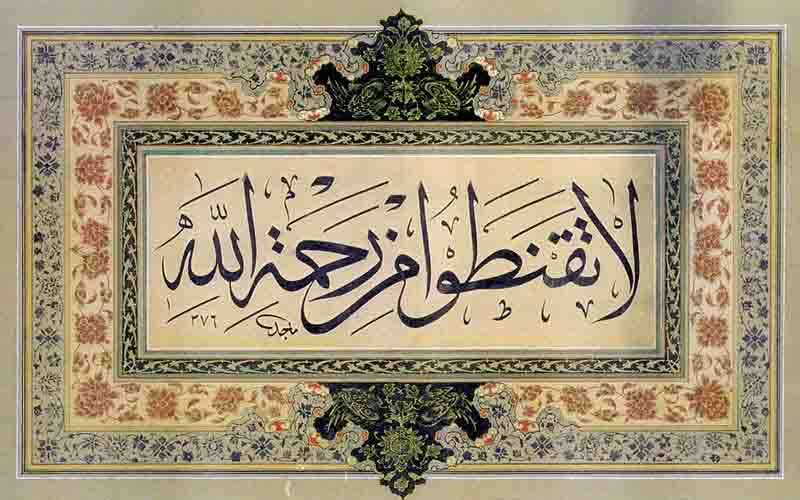 لا تقنطوا من رحمة الله
ماجد ٣٧٦